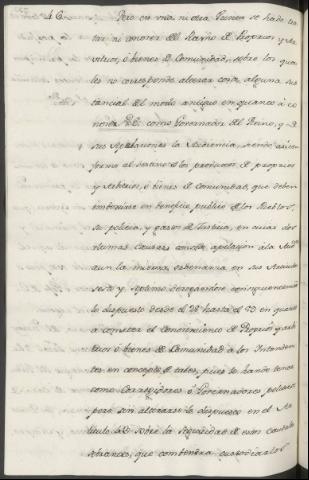 46. Pero en una ni otra Juntas se ha de tra-
tar ni conocer del Ramo de Propios, y Ar-
vitrios, ó bienes de Comunidad, sobre los qua-
les no corresponde alterar cosa alguna sus-
tancial del modo antiguo en quanto á co-
nocer V.E. como Governador del Reino, y de
sus Apelaciones la Audiencia, siendo assi con-
forme al destino de los productos de propios
y Arvitrios, ó bienes de Comunidad, que deben
imbertirse en beneficio publico de los Pueblos,
su policia, y gasos de Justicia, en cuias dos
ultimas causas concede apelacion á la Aud.ª
aun la misma ordenanza en sus Articulos
sesto y septimo derogandose consiguientemente
lo dispuesto desde el 28 hasta el 50 en quanto
a cometer el Conocimiento de Propios y arbi-
trios ó bienes de Comunidad a los Intenden-
tes en concepto de tales, pues le han de tener
como Corregidores ó Governadores
pero sin alterarse lo dispuesto en el Ar-
ticulo sobre la seguridad de estos Caudales
que combendrá custodiarlos